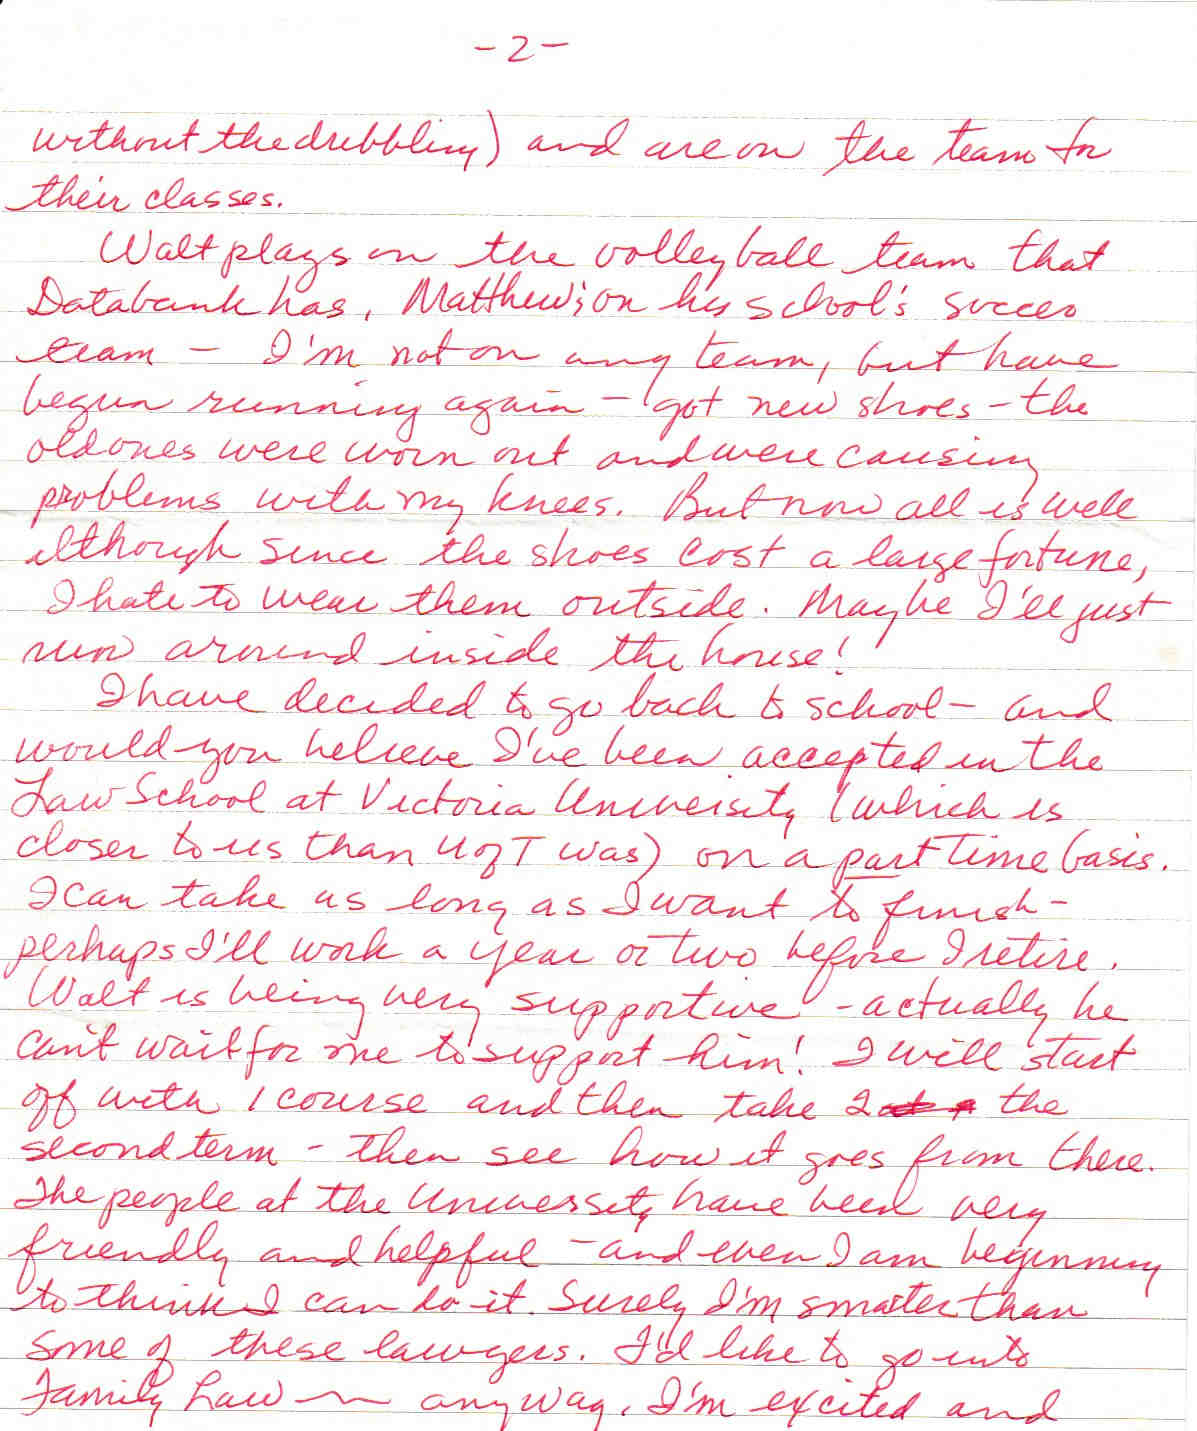 -2-
without the dribbling) and are on the team for
their classes.
Walt plays on the volleyball team that
Databank has, Matthew's on his school's soccer
team - I'm not on any team, but have
begun running again - got new shoes - the
old ones were worn out and were causing
problems with my knees. But now all is well
although since the shoes cost a large fortune,
I hate to wear them outside. Maybe I'll just
run around inside the house!
I have decided to go back to school - and
would you believe I've been accepted in the
Law School at Victoria University (which is
closer to us than U of T was) on a part time basis.
I can take as long as I want to finish -
perhaps I'll work a year or two before I retire.
Walt is being very supportive - actually he
can't wait for me to support him! I will start
off with 1 course and then take 2 the
second term - then see how it goes from there.
The people at the University have been very
friendly and helpful - and even I am beginning
to think I can do it. Surely I'm smarter than
some of these lawyers. I'd like to go into
Family Law - anyway, I'm excited and